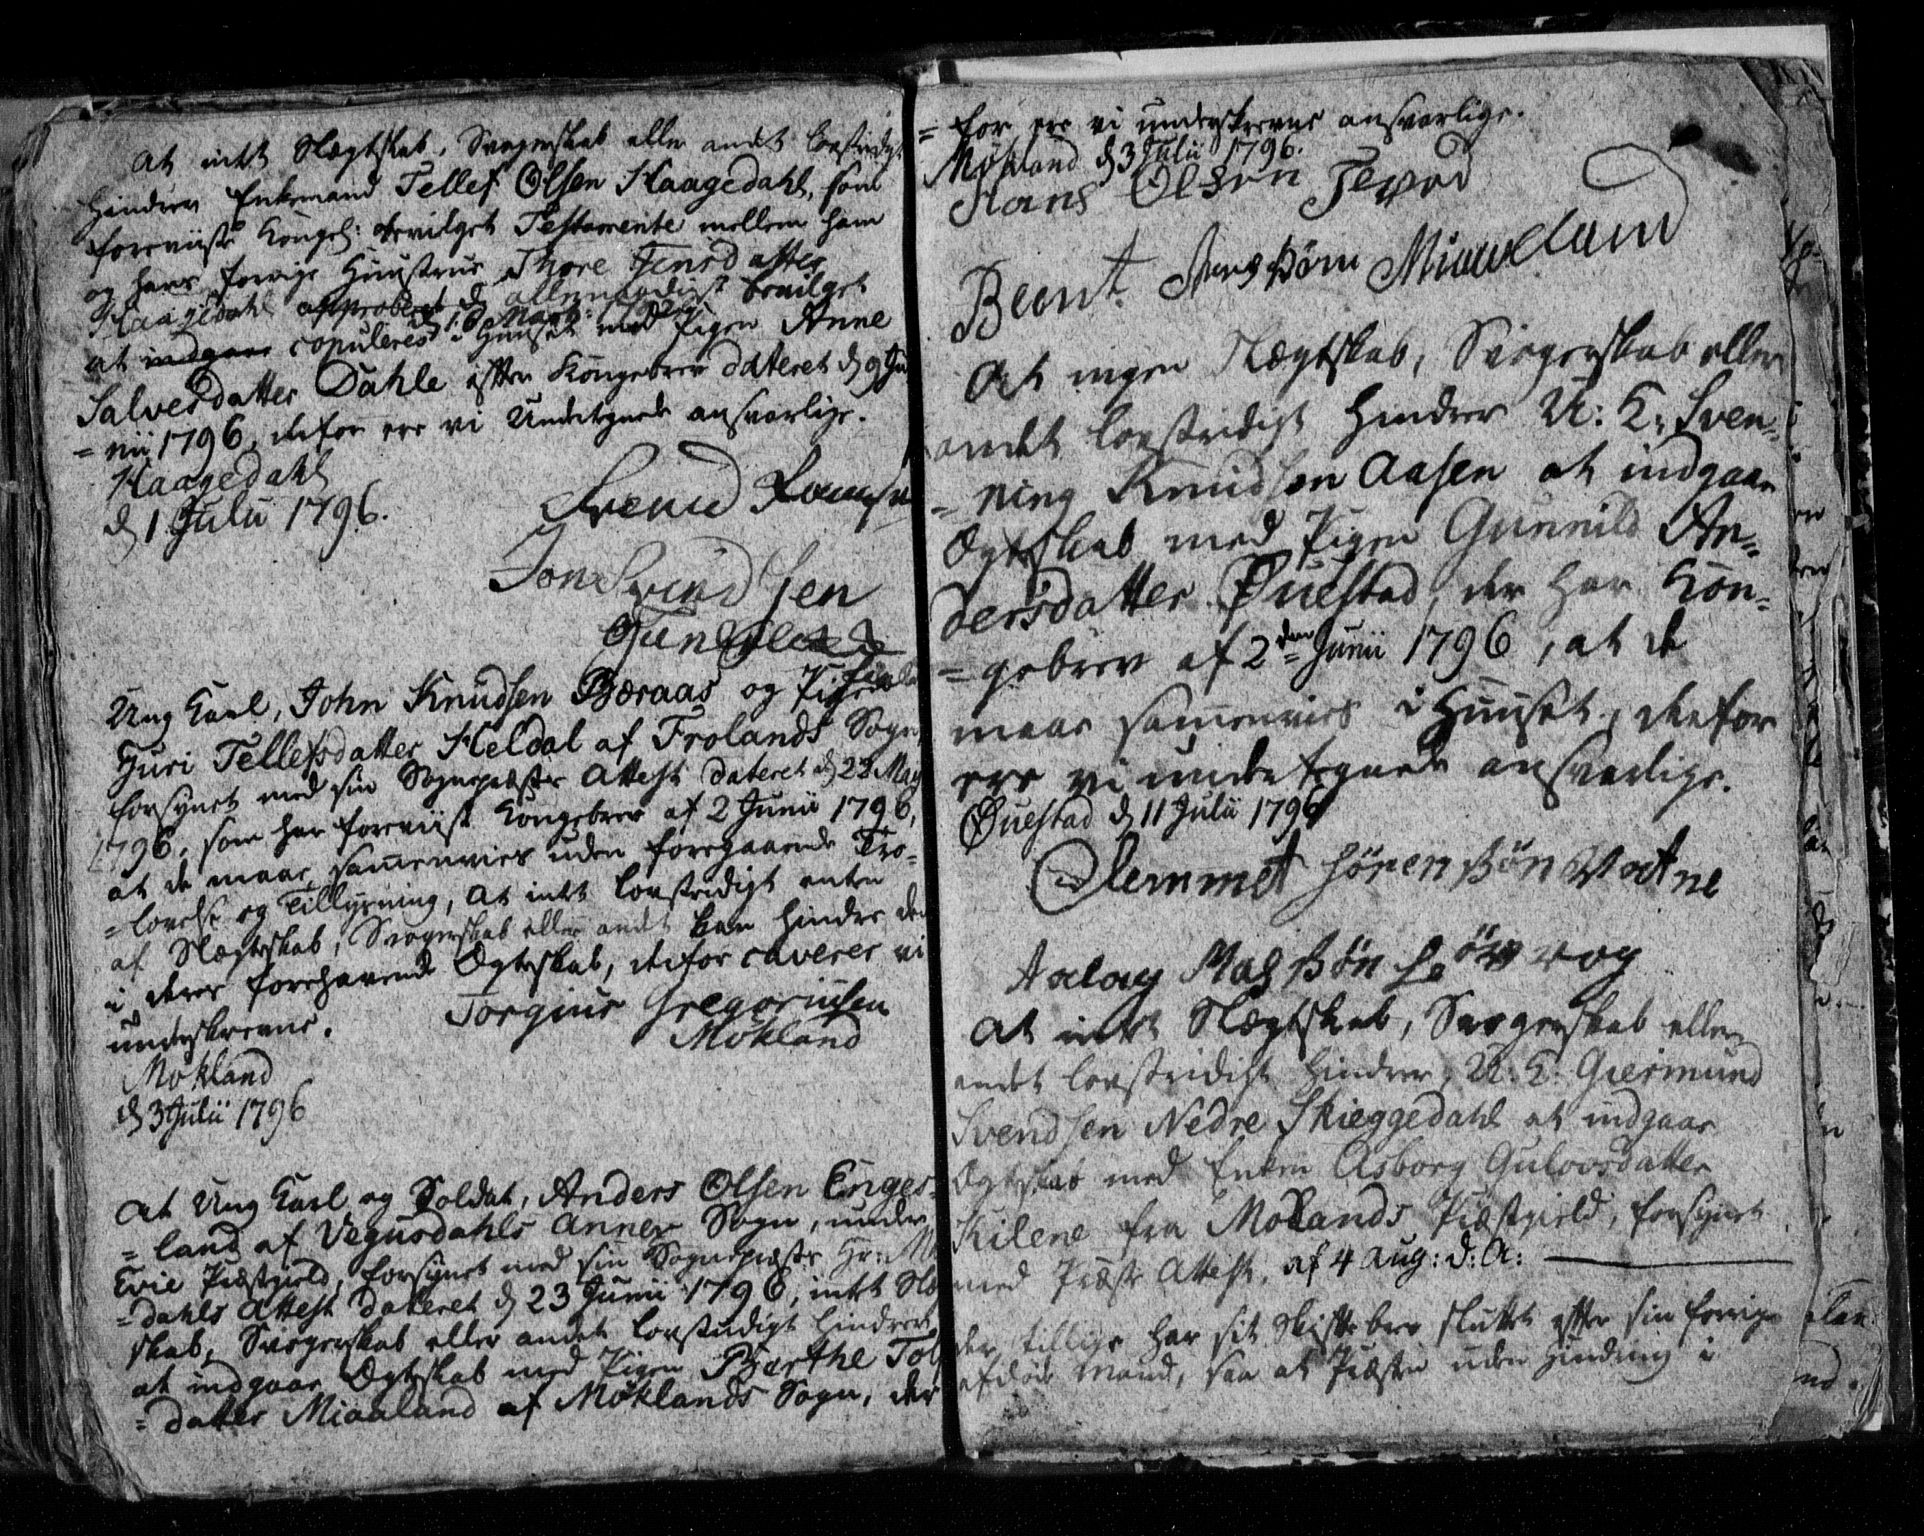 At intet Slægtskab, Svogerskab eller andet lovstridigt
hindrer Enkemand Tellef Olsen Haagedahl, som
foreviiste Kongel: bevilget Testamente mellem ham
og hans forrige Huustrue Thore Jensdatter
Haagedahl approberet d. allernaadigst bevilget
at indgaae copuleres i Huuset med Pigen Anne
Salvesdatter Dahle efter Kongebrev dateret d 9 Ju
= nii 1796, derfor ere vi Undertegnede ansvarlige.
Haagedahl
d 1 Julii 1796.
Svend
Jon Svendsen
Ung Karl, John Knudsen Bæraas og Pigen
Guri Tellefsdatter Heldal af Frolands Sogn
forsynet med sin Sognepræstes Attest dateret d 22 May
1796, som har foreviist Kongebrev af 2 Junii 1796,
at de maae sammenvies uden foregaaende Tro-
= lovelse og Tillysning, at intet lovstridigt enten
af Slægtskab, Svogerskab eller andet kan hindre dem
i deres forehavende Ægteskab, derfor caverer vi
underskrevne.
Torgius Gregoriusen
Mökland
Mökland
d 3 Julii 1796
At Ung Karl og Soldat, Anders Olsen Enges-
= land af Vegusdahls Annex Sogn, under
Evie Præstegield, forsynet med sin Sognepræstes Hr:
= dahls Attest dateret d 23 Junii 1796, intet Slæ
skab, Svogerskab eller andet lovstridigt hindrer
at indgaae Ægteskab med Pigen Barthe
= datter Miaaland af Möklands Sogn, der
= for ere vi underskrevne ansvarlige.
Mökland d 3 Julii 1796.
Hans Olsen
Beent
At ingen Slægtskab, Svogerskab eller
andet lovstridigt hindrer U: K: Sven-
= ning Knudsen Aasen at indgaae
Ægteskab med Pigen Gunnild An-
dersdatter Øuestad, der har Kon-
= gebrev af 2den Junii 1796, at de
maae sammenvies i Huuset, derfor
ere vi undertegnede ansvarlige.
Øuestad d 11 Julii 1796
Clemmet Sörenssön Vatne
Aslag
At intet Slægtskab, Svogerskab eller
andet lovstridigt hindrer, U. K. Giermund
Svendsen Nedre Skieggedahl at indgaae
Ægteskab med Enken Asborg Gulovsdatter
Kilene fra Molands Præstegield, forsynet
med Præste Attest, af 4 Aug: d: A:
der tillige har sit Skiftebrev sluttet efter sin forrige
afdöde Mand, saa at Præsten uden Hindring i